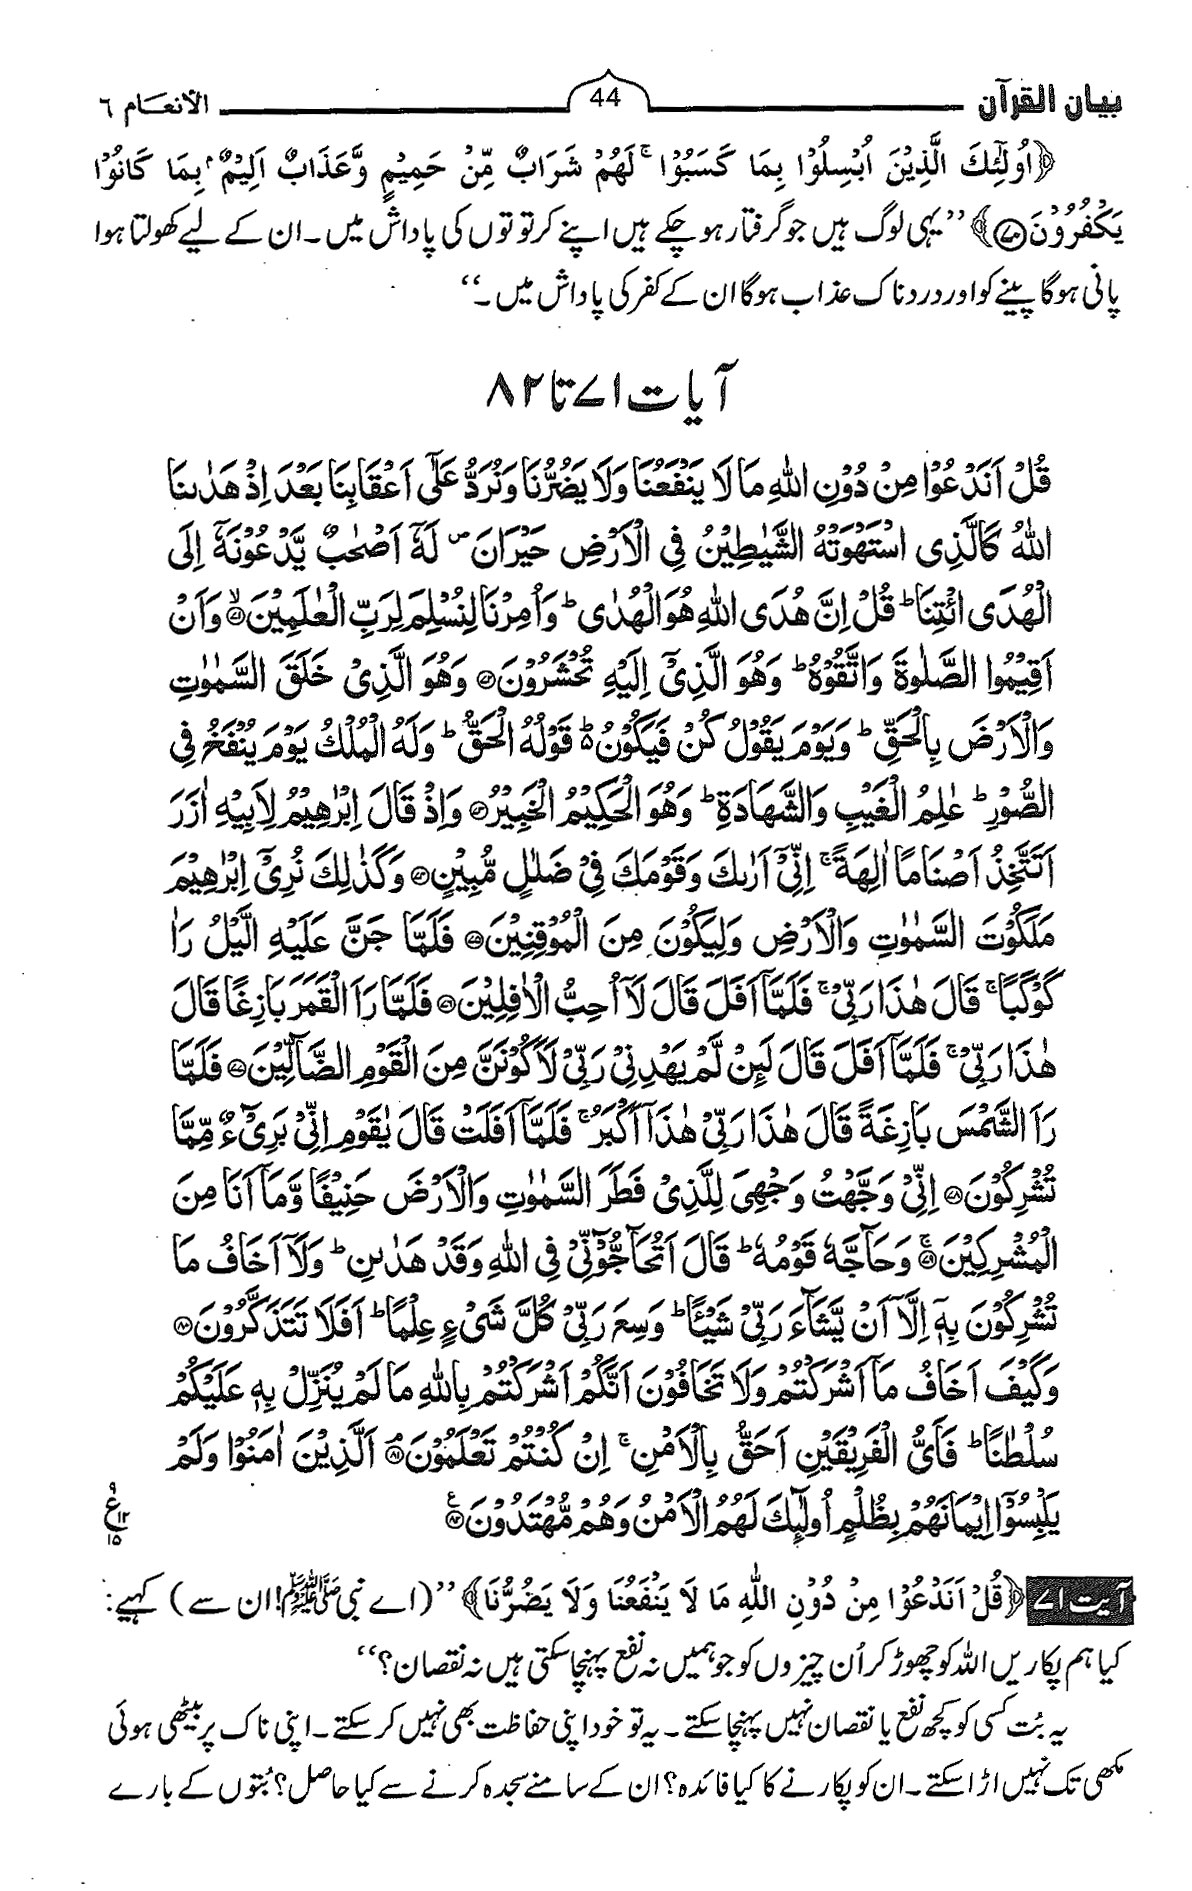 بیان القرآن 44 الانعام ٦
﴿اُولٰٓئِكَ الَّذِیْنَ اُبْسِلُوْا بِمَا كَسَبُوْا ۚ لَهُمْ شَرَابٌ مِّنْ حَمِیْمٍ وَّعَذَابٌ اَلِیْمٌۢ بِمَا كَانُوْا
یَكْفُرُوْنَ ﴿۷۰﴾﴾ ’’یہی لوگ ہیں جو گرفتار ہو چکے ہیں اپنے کرتوتوں کی پاداش میں۔ ان کے لیے کھولتا ہوا
پانی ہوگا پینے کو اور دردناک عذاب ہوگا ان کے کفر کی پاداش میں۔‘‘
آیات ۷۱ تا ۸۲
قُلْ اَنَدْعُوْا مِنْ دُوْنِ اللّٰهِ مَا لَا یَنْفَعُنَا وَلَا یَضُرُّنَا وَنُرَدُّ عَلٰۤی اَعْقَابِنَا بَعْدَ اِذْ هَدٰىنَا
اللّٰهُ كَالَّذِی اسْتَهْوَتْهُ الشَّیٰطِیْنُ فِی الْاَرْضِ حَیْرَانَ ۪ لَهٗۤ اَصْحٰبٌ یَّدْعُوْنَهٗۤ اِلَی
الْهُدَی ائْتِنَا ؕ قُلْ اِنَّ هُدَی اللّٰهِ هُوَ الْهُدٰی ؕ وَاُمِرْنَا لِنُسْلِمَ لِرَبِّ الْعٰلَمِیْنَ ﴿۷۱﴾ۙ وَاَنْ
اَقِیْمُوا الصَّلٰوةَ وَاتَّقُوْهُ ؕ وَهُوَ الَّذِیْۤ اِلَیْهِ تُحْشَرُوْنَ ﴿۷۲﴾ وَهُوَ الَّذِیْ خَلَقَ السَّمٰوٰتِ
وَالْاَرْضَ بِالْحَقِّ ؕ وَیَوْمَ یَقُوْلُ كُنْ فَیَكُوْنُ ؕ۬ قَوْلُهُ الْحَقُّ ؕ وَلَهُ الْمُلْكُ یَوْمَ یُنْفَخُ فِی
الصُّوْرِ ؕ عٰلِمُ الْغَیْبِ وَالشَّهَادَةِ ؕ وَهُوَ الْحَكِیْمُ الْخَبِیْرُ ﴿۷۳﴾ وَاِذْ قَالَ اِبْرٰهِیْمُ لِاَبِیْهِ اٰزَرَ
اَتَتَّخِذُ اَصْنَامًا اٰلِهَةً ۚ اِنِّیْۤ اَرٰىكَ وَقَوْمَكَ فِیْ ضَلٰلٍ مُّبِیْنٍ ﴿۷۴﴾ وَكَذٰلِكَ نُرِیْۤ اِبْرٰهِیْمَ
مَلَكُوْتَ السَّمٰوٰتِ وَالْاَرْضِ وَلِیَكُوْنَ مِنَ الْمُوْقِنِیْنَ ﴿۷۵﴾ فَلَمَّا جَنَّ عَلَیْهِ الَّیْلُ رَاٰ
كَوْكَبًا ۚ قَالَ هٰذَا رَبِّیْ ۚ فَلَمَّاۤ اَفَلَ قَالَ لَاۤ اُحِبُّ الْاٰفِلِیْنَ ﴿۷۶﴾ فَلَمَّا رَاَ الْقَمَرَ بَازِغًا قَالَ
هٰذَا رَبِّیْ ۚ فَلَمَّاۤ اَفَلَ قَالَ لَئِنْ لَّمْ یَهْدِنِیْ رَبِّیْ لَاَكُوْنَنَّ مِنَ الْقَوْمِ الضَّآلِّیْنَ ﴿۷۷﴾ فَلَمَّا
رَاَ الشَّمْسَ بَازِغَةً قَالَ هٰذَا رَبِّیْ هٰذَاۤ اَكْبَرُ ۚ فَلَمَّاۤ اَفَلَتْ قَالَ یٰقَوْمِ اِنِّیْ بَرِیْٓءٌ مِّمَّا
تُشْرِكُوْنَ ﴿۷۸﴾ اِنِّیْ وَجَّهْتُ وَجْهِیَ لِلَّذِیْ فَطَرَ السَّمٰوٰتِ وَالْاَرْضَ حَنِیْفًا وَّمَاۤ اَنَا مِنَ
الْمُشْرِكِیْنَ ﴿۷۹﴾ۚ وَحَآجَّهٗ قَوْمُهٗ ؕ قَالَ اَتُحَآجُّوْٓنِّیْ فِی اللّٰهِ وَقَدْ هَدٰىنِ ؕ وَلَاۤ اَخَافُ مَا
تُشْرِكُوْنَ بِهٖۤ اِلَّاۤ اَنْ یَّشَآءَ رَبِّیْ شَیْـًٔا ؕ وَسِعَ رَبِّیْ كُلَّ شَیْءٍ عِلْمًا ؕ اَفَلَا تَتَذَكَّرُوْنَ ﴿۸۰﴾
وَكَیْفَ اَخَافُ مَاۤ اَشْرَكْتُمْ وَلَا تَخَافُوْنَ اَنَّكُمْ اَشْرَكْتُمْ بِاللّٰهِ مَا لَمْ یُنَزِّلْ بِهٖ عَلَیْكُمْ
سُلْطٰنًا ؕ فَاَیُّ الْفَرِیْقَیْنِ اَحَقُّ بِالْاَمْنِ ۚ اِنْ كُنْتُمْ تَعْلَمُوْنَ ﴿۸۱﴾ۘ اَلَّذِیْنَ اٰمَنُوْا وَلَمْ
یَلْبِسُوْۤا اِیْمَانَهُمْ بِظُلْمٍ اُولٰٓئِكَ لَهُمُ الْاَمْنُ وَهُمْ مُّهْتَدُوْنَ ﴿۸۲﴾ ع
۹ ع ۱۲ ۱۵
آیت ۷۱ ﴿قُلْ اَنَدْعُوْا مِنْ دُوْنِ اللّٰهِ مَا لَا یَنْفَعُنَا وَلَا یَضُرُّنَا﴾ ’’(اے نبی ﷺ! ان سے) کہیے:
کیا ہم پکاریں اللہ کو چھوڑ کر اُن چیزوں کو جو ہمیں نہ نفع پہنچا سکتی ہیں نہ نقصان؟‘‘
یہ بُت کسی کو کچھ نفع یا نقصان نہیں پہنچا سکتے۔ یہ تو خود اپنی حفاظت بھی نہیں کر سکتے۔ اپنی ناک پر بیٹھی ہوئی
مکھی تک نہیں اڑا سکتے۔ ان کو پکارنے کا کیا فائدہ؟ ان کے سامنے سجدہ کرنے سے کیا حاصل؟ بُتوں کے بارے